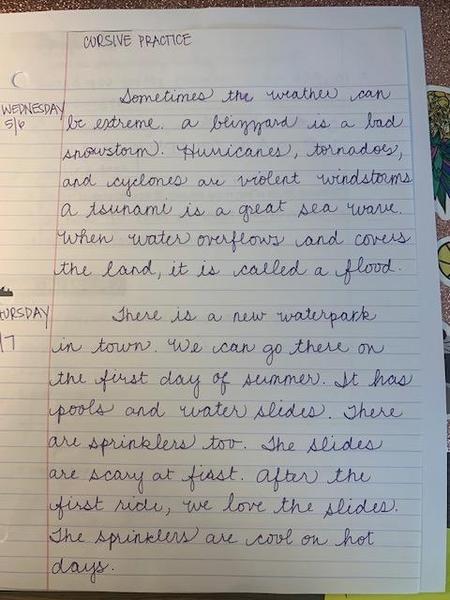 CURSIVE PRACTICE
WEDNESDAY
5/6
Sometimes the weather can
be extreme. a blizzard is a bad
snowstorm. Hurricanes, tornadoes,
and cyclones are violent windstorms
a tsunami is a great sea wave.
When water overflows and covers
the land, it is called a flood.
URSDAY
/7
There is a new waterpark
in town. We can go there on
the first day of summer. It has
pools and water slides. There
are sprinklers too. The slides
are scary at first. After the
first ride, we love the slides.
The sprinklers are cool on hot
days.